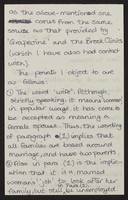 as the above-mentioned one
comes from the same
source as that provided by
'Grapevine' and the Brook Clinics
(which I have also had contact
with).
The points I object to are
as follows:
① The word 'wife'. Although,
strictly speaking, it means woman
in popular usage it has come
to be accepted as meaning a
female spouse. Thus, the wording
of paragraph (2) implies that
all families are based around
marriage, and have two parents.
② Also in para (2) is the
implication that it is a married
woman's 'job' to look after her
family, but still be unemployed.